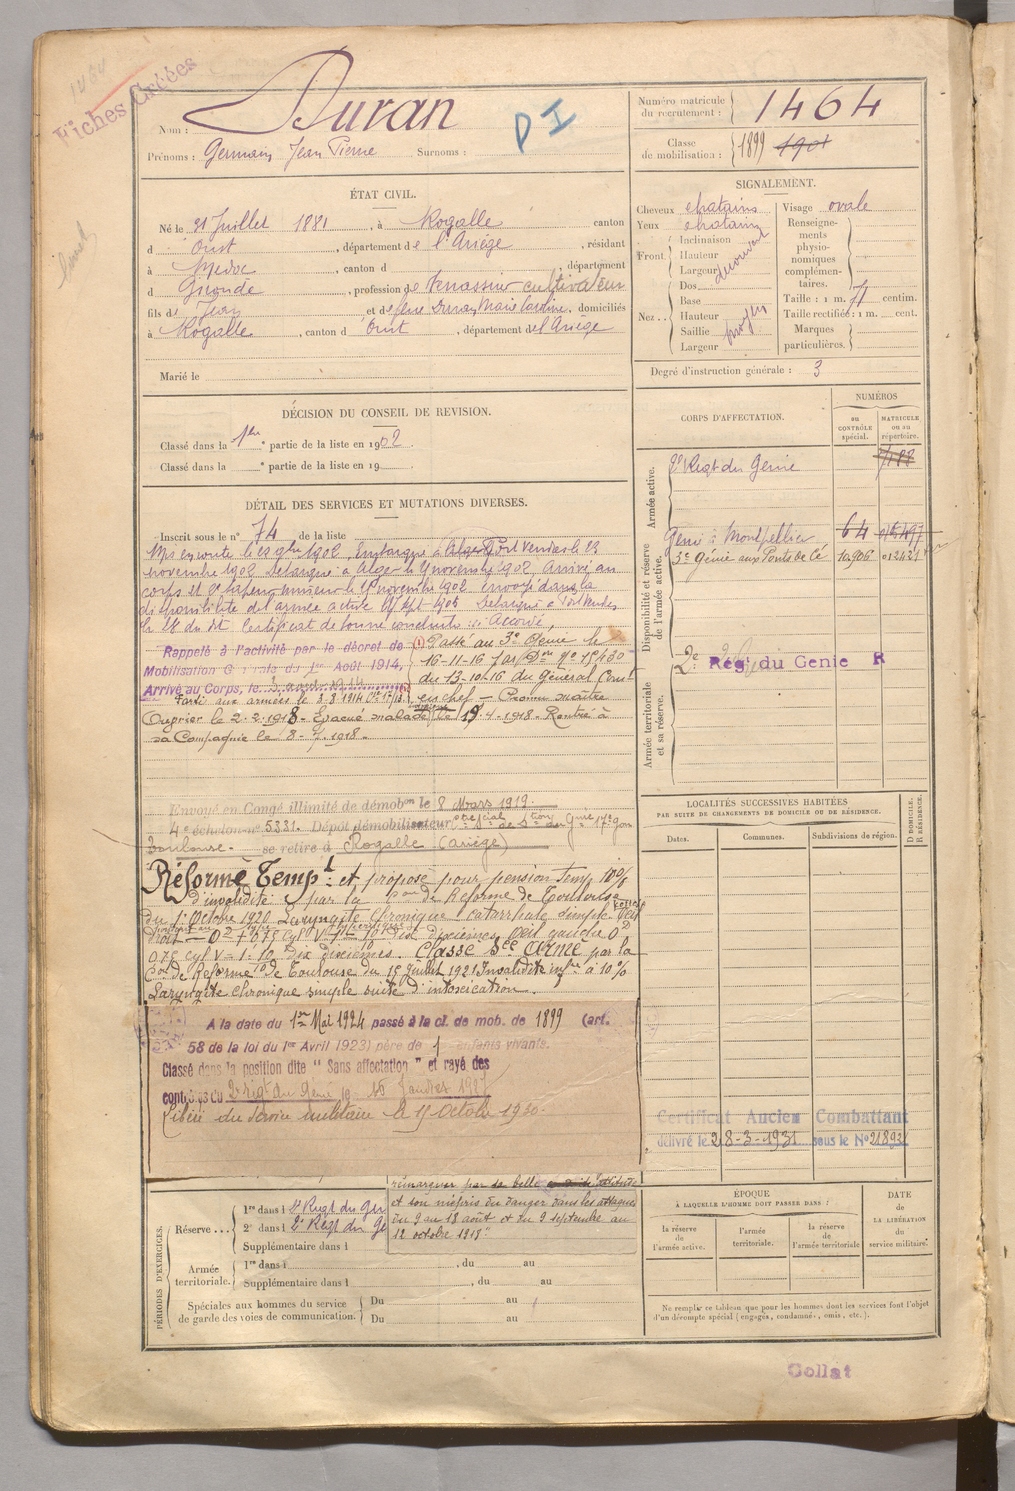 1464
Fiches Créées
Nom : Duran
P I
Prénoms : Germain Jean Pierre Surnoms :
Numéro matricule du recrutement : 1464
Classe de mobilisation : 1899 1901
ÉTAT CIVIL.
Né le 31 Juillet 1881, à Rogalle canton
d Oust, département de l'Ariège, résidant
à Médoc, canton d , département
d Gironde, profession de Terrassier cultivateur
fils de Jean et de feue Duran Marie Caroline, domiciliés
à Rogalle, canton d'Oust, département de l'Ariège
Marié le
SIGNALEMENT.
Cheveux chatains Visage ovale
Yeux chatains
Front. Inclinaison Hauteur Largeur découvert
Nez... Dos Base Hauteur Saillie Largeur moyen
Renseignements physionomiques complémentaires.
Taille : 1 m. 71 centim.
Taille rectifiée : 1 m. cent.
Marques particulières.
Degré d'instruction générale : 3
DÉCISION DU CONSEIL DE REVISION.
Classé dans la 1ère partie de la liste en 1902
Classé dans la e partie de la liste en 19
CORPS D'AFFECTATION.
NUMÉROS
au CONTRÔLE spécial.
MATRICULE ou au répertoire.
Armée active.
2e Regt du Génie
Disponibilité et réserve de l'armée active.
Génie à Montpellier 64
3e Génie aux Ponts de Cé
Armée territoriale et sa réserve.
2e Rég. du Genie R
DÉTAIL DES SERVICES ET MUTATIONS DIVERSES.
Inscrit sous le n° 74 de la liste
Mis en route le 1902. Embarqué à Alger Port Vendres le 23
novembre 1902 Débarqué à Alger le novembre 1902. Arrivé au
corps et 2e sapeur mineur le novembre 1902. Envoyé dans la
disponibilité de l'armée active le sept 1905 Débarqué à Port Vendres
le 18 du dit. Certificat de bonne conduite « Accordé »
Rappelé à l'activité par le décret de
Mobilisation Générale du 1er Août 1914,
Arrivé au Corps, le 3 août 1914
(1) Passé au 3e Génie le
16-11-16 par Don n° 15430
du 13-10-16 du Général Comt
en chef — Promu maître
Parti aux armées le 3.8.1914
Ouvrier le 2.2.1918 - Evacué malade le 19.4.1918 - Rentré à
sa Compagnie le 8-7.1918.
Envoyé en Congé illimité de démobon le 8 Mars 1919.
4e échelon n° 5331. Dépôt démobilisateur
Toulouse. se retire à Rogalle (Ariège)
Réformé Tempt et proposé pour pension temp 10%
d'invalidité par la Con de Réforme de Toulouse
du 1er Octobre 1920 Laryngite chronique catarrhale simple
dixièmes Oeil gauche
Dix dixièmes. Classé Sce Armé par la
Con de Réforme de Toulouse du 15 juillet 1921 Invalidité infre à 10%
Laryngite chronique simple suite d'intoxication.
A la date du 1er Mai 1924 passé à la cl. de mob. de 1899 (art.
58 de la loi du 1er Avril 1923) père de 1 enfants vivants.
Classé dans la position dite " Sans affectation " et rayé des
contrôles du 2e rég. du Génie le 16 Janvier 1927
Libéré du service militaire le 15 Octobre 1930.
LOCALITÉS SUCCESSIVES HABITÉES
PAR SUITE DE CHANGEMENTS DE DOMICILE OU DE RÉSIDENCE.
Dates. Communes. Subdivisions de région. D DOMICILE. R RÉSIDENCE.
Certificat Ancien Combattant
délivré le 28-3-1931 sous le N° 21892
PÉRIODES D'EXERCICES.
Réserve... 1re dans l 2e Regt du Gén
2e dans l 2e Regt du Gé
Supplémentaire dans l
Armée territoriale. 1re dans l , du au
Supplémentaire dans l , du au
Spéciales aux hommes du service de garde des voies de communication. Du au
Du au
remarquer par sa belle attitude
et son mépris du danger dans les attaques
du 9 au 18 août et du 9 septembre au
12 octobre 1918"
ÉPOQUE
À LAQUELLE L'HOMME DOIT PASSER DANS :
la réserve de l'armée active.
l'armée territoriale.
la réserve de l'armée territoriale
DATE DE LA LIBÉRATION du service militaire.
Ne remplir ce tableau que pour les hommes dont les services font l'objet
d'un décompte spécial (engagés, condamnés, omis, etc.).
Collat